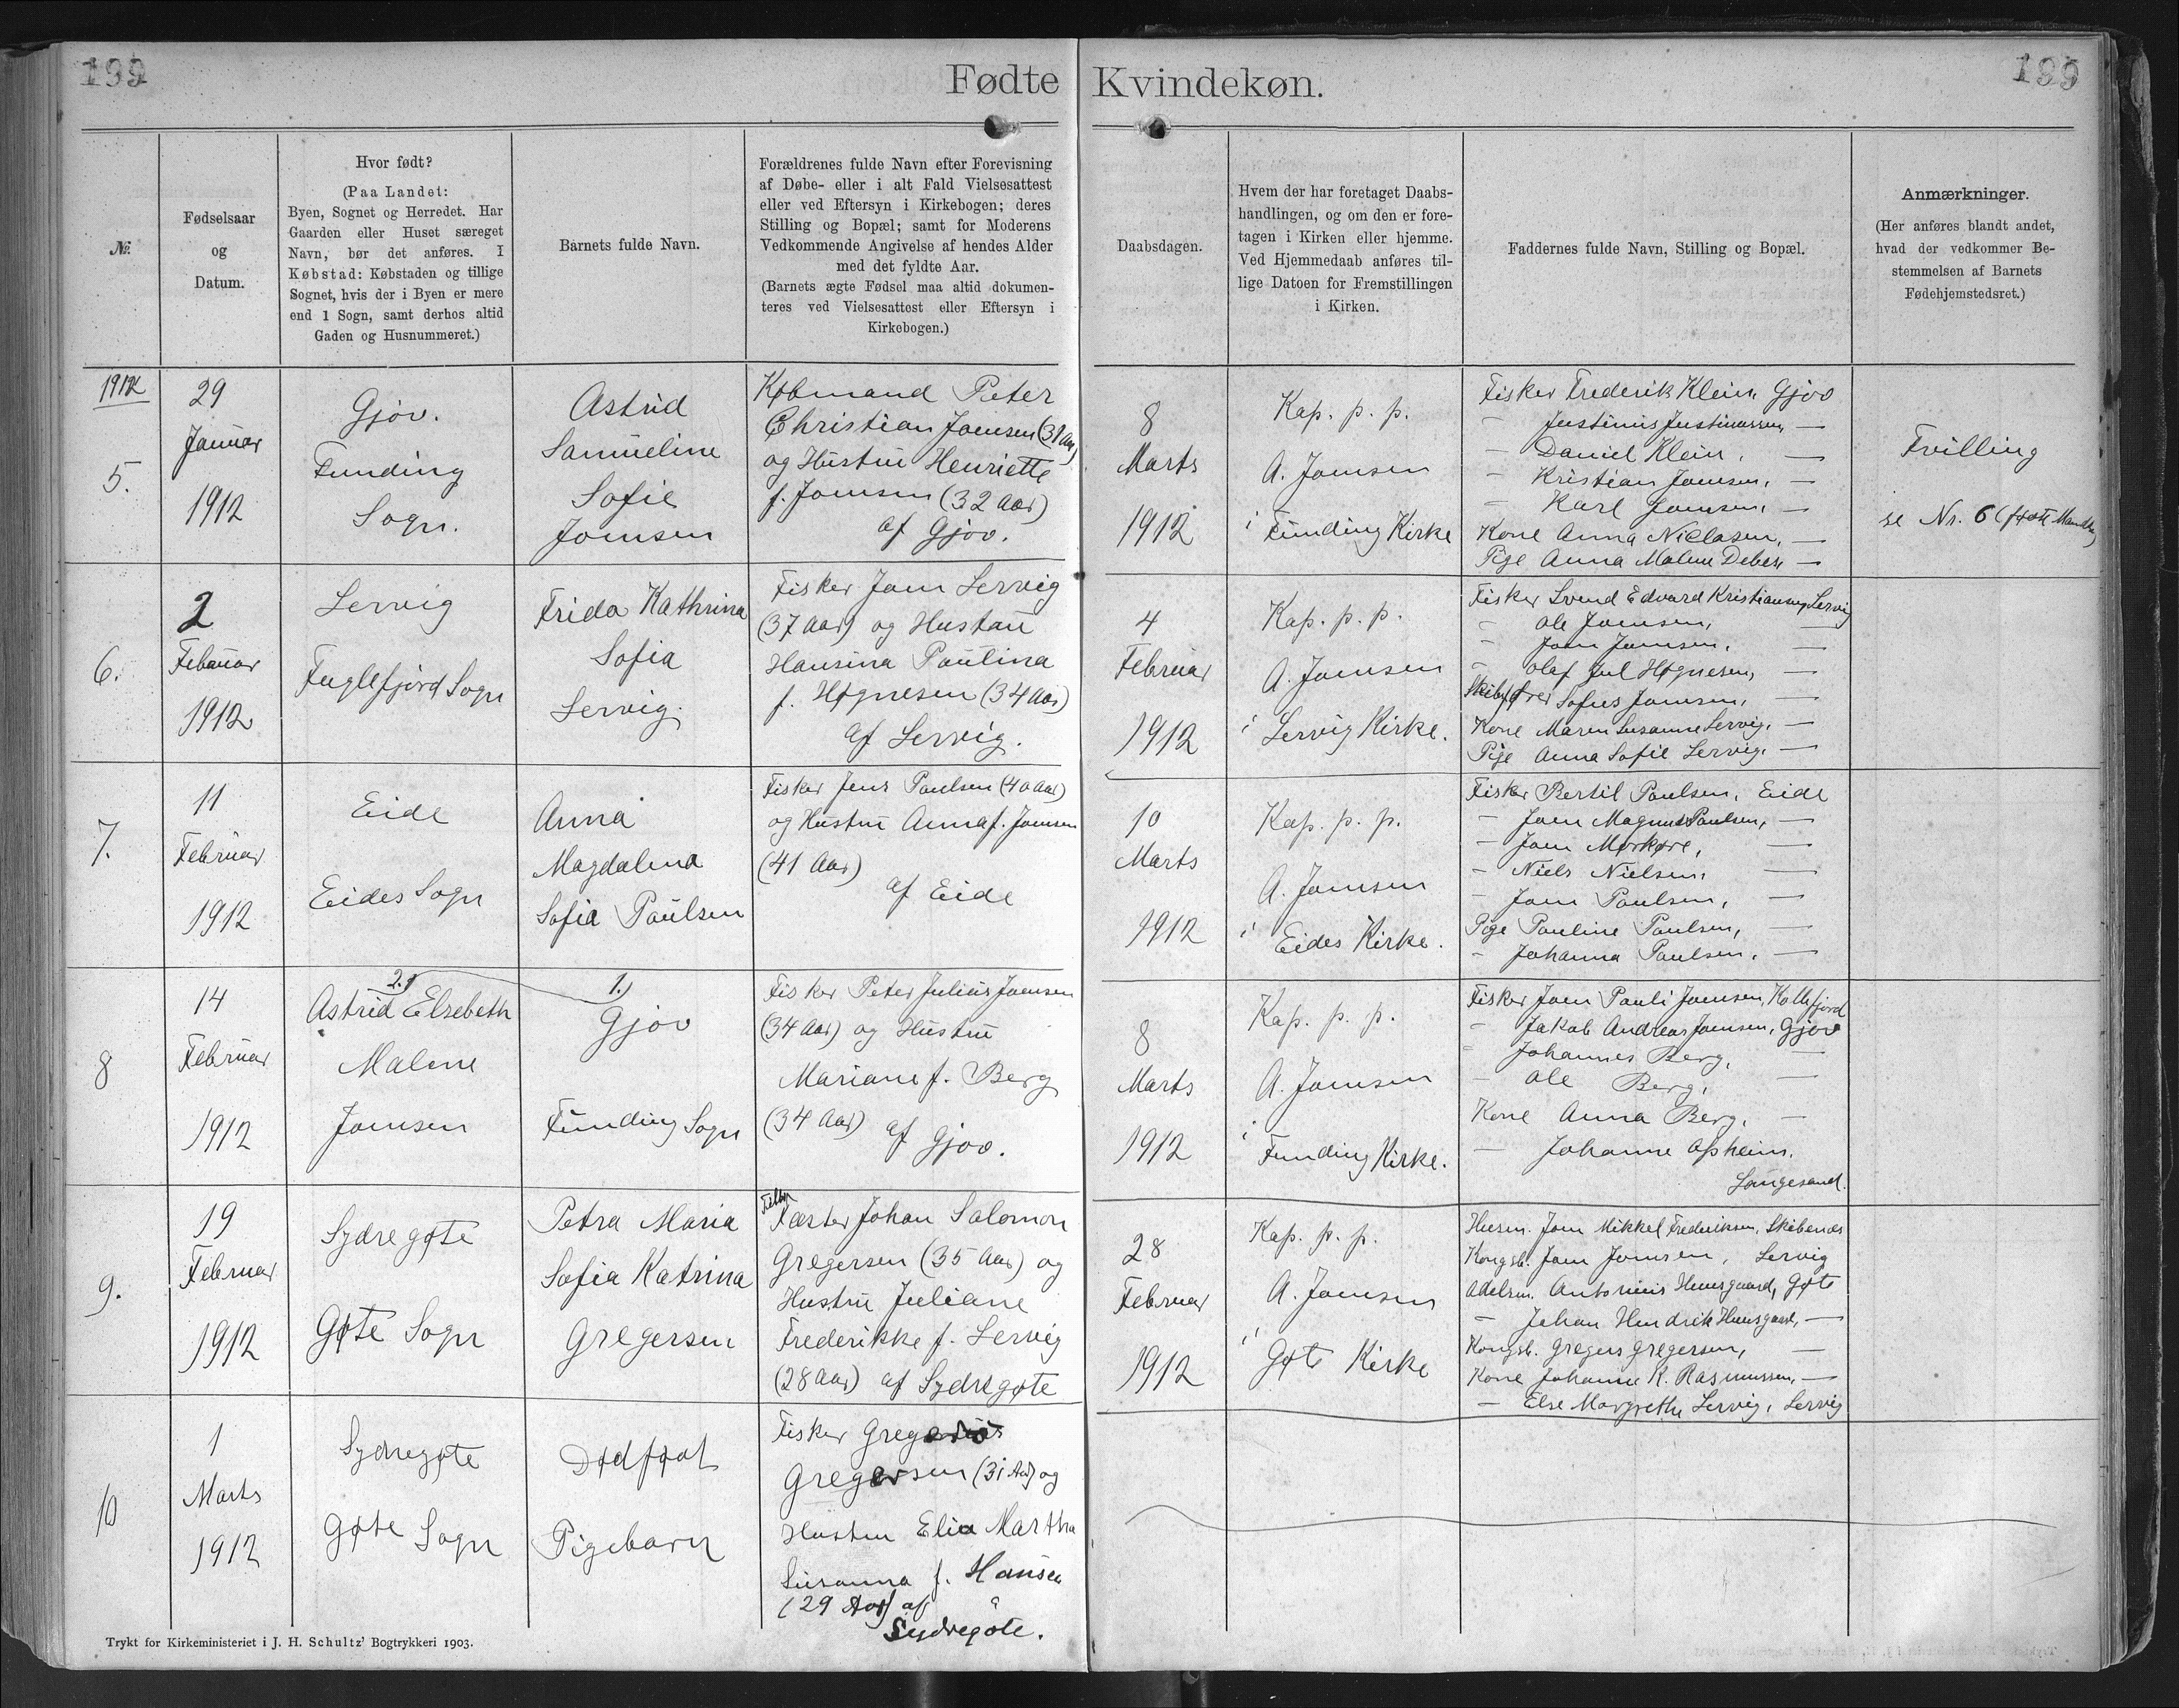 199
Fødte Kvindekøn.
199
№
Fødselsaar
og
Datum.
Hvor født?
(Paa Landet:
Byen, Sognet og Herredet. Har
Gaarden eller Huset særeget
Navn, bør det anføres. I
Købstad: Købstaden og tillige
Sognet, hvis der i Byen er mere
end 1 Sogn, samt derhos altid
Gaden og Husnummeret.)
Barnets fulde Navn.
Forældrenes fulde Navn efter Forevisning
af Døbe- eller i alt Fald Vielsesattest
eller ved Eftersyn i Kirkebogen; deres
Stilling og Bopæl; samt for Moderens
Vedkommende Angivelse af hendes Alder
med det fyldte Aar.
(Barnets ægte Fødsel maa altid dokumen-
teres ved Vielsesattest eller Eftersyn i
Kirkebogen.)
Daabsdagen.
Hvem der har foretaget Daabs-
handlingen, og om den er fore-
tagen i Kirken eller hjemme.
Ved Hjemmedaab anføres til-
lige Datoen for Fremstillingen
i Kirken.
Faddernes fulde Navn, Stilling og Bopæl.
Anmærkninger.
(Her anføres blandt andet,
hvad der vedkommer Be-
stemmelsen af Barnets
Fødehjemstedsret.)
1912
5.
29
Januar
1912
Gjov.
Funding
Sogn.
Astrid
Samueline
Sofie
Joensen
Købmand Peter
Christian Joensen (31 Aar)
og Hustru Henriette
f. Joensen (32 Aar)
af Gjov.
8
Marts
1912
Kap. p. p.
A. Joensen
i Funding Kirke
Fisker Frederik Klein, Gjov
- Justinus Justinussen, —
- Daniel Klein, —
- Kristian Joensen, —
- Karl Joensen, —
Kone Anna Niclasen, —
Pige Anna Malene Debes, —
Tvilling
se Nr. 6 (født Mandk.)
6.
2
Februar
1912
Lervig
Fuglefjord Sogn
Frida Kathrina
Sofia
Lervig.
Fisker Joen Lervig
(37 Aar) og Hustru
Hansina Paulina
f. Høgnesen (34 Aar)
af Lervig.
4
Februar
1912
Kap. p. p.
A. Joensen
i Lervig Kirke.
Fisker Svend Edvard Kristiansen, Lervig
- Ole Joensen, —
- Joen Joensen, —
- Olaf Jul Høgnesen, —
Skibsfører Sofus Joensen, —
Kone Maren Susanne Lervig, —
Pige Anna Sofie Lervig, —
7.
11
Februar
1912
Eide
Eides Sogn
Anna
Magdalena
Sofia Paulsen
Fisker Jens Paulsen (40 Aar)
og Hustru Anna f. Joensen
(41 Aar)
af Eide
10
Marts
1912
Kap. p. p.
A. Joensen
i Eides Kirke.
Fisker Bertil Paulsen, Eide
- Joen Magnus Paulsen, —
- Joen Mørkøre, —
- Niels Nielsen, —
- Joen Paulsen, —
Pige Pauline Paulsen, —
- Johanna Paulsen, —
8
14
Februar
1912
2.)
Astrid Elsebeth
Malene
Joensen
1.)
Gjov
Funding Sogn
Fisker Peter Julius Joensen
(34 Aar) og Hustru
Mariane f. Berg
(34 Aar)
af Gjov.
8
Marts
1912
Kap. p. p.
A. Joensen
i Funding Kirke.
Fisker Joen Pauli Joensen, Kollefjord
- Jakob Andreas Joensen, Gjov
- Johannes Berg, —
- Ole Berg, —
Kone Anna Berg, —
— Johanne Apsheim,
Langesand.
9.
19
Februar
1912
Sydregøte
Gøte Sogn
Petra Maria
Sofia Katrina
Gregersen
Fæster Johan Salomon
Gregersen (35 Aar) og
Hustru Juliane
Frederikke f. Lervig
(28 Aar) af Sydregøte
28
Februar
1912
Kap. p. p.
A. Joensen
i Gøte Kirke
Husm. Joen Mikkel Frederiksen, Skibenæs
Kongsb. Joen Joensen, Lervig
Adelsm. Antonius Heinsgaard, Gøte
- Johan Hendrik Heinsgaard, —
Kongsb. Gregers Gregersen, —
Kone Johanne K. Rasmussen, —
— Else Margrethe Lervig, Lervig
10
1
Marts
1912
Sydregøte
Gøte Sogn
Dødfødt
Pigebarn
Fisker Gregorius
Gregersen (31 Aar) og
Hustru Elia Martha
Susanna f. Hansen
(29 Aar) af
Sydregøte.
Trykt for Kirkeministeriet i J. H. Schultz' Bogtrykkeri 1903.